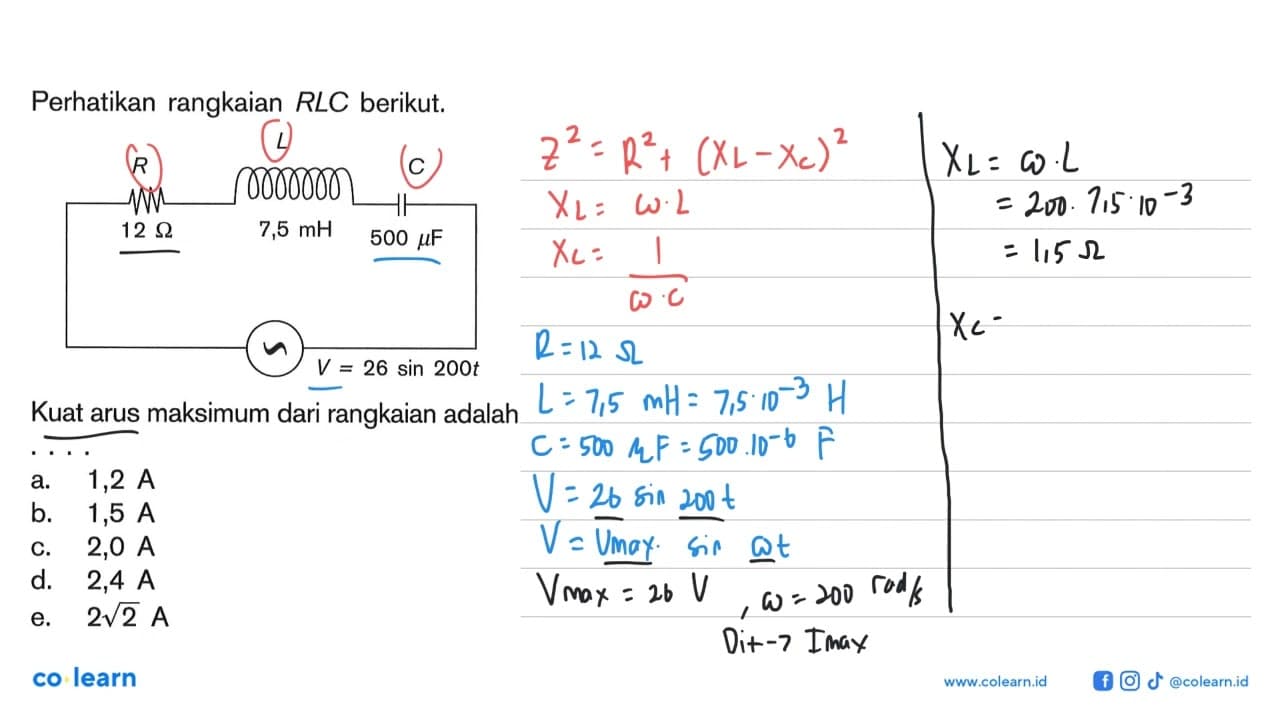 Perhatikan rangkaian RLC berikut.
R
L
C
12 Ω
7,5 mH
500 μF
V = 26 sin 200t
Kuat arus maksimum dari rangkaian adalah
. . . .
a. 1,2 A
b. 1,5 A
c. 2,0 A
d. 2,4 A
e. 2√2 A
Z² = R² + (XL - Xc)²
XL = ω.L
Xc = 1/ω.C
R = 12 Ω
L = 7,5 mH = 7,5.10⁻³ H
C = 500 μF = 500.10⁻⁶ F
V = 26 sin 200t
V = Vmax. sin ωt
Vmax = 26 V , ω = 200 rad/s
Dit → Imax
XL = ω.L
= 200. 7,5.10⁻³
= 1,5 Ω
Xc =
co learn
www.colearn.id
@colearn.id